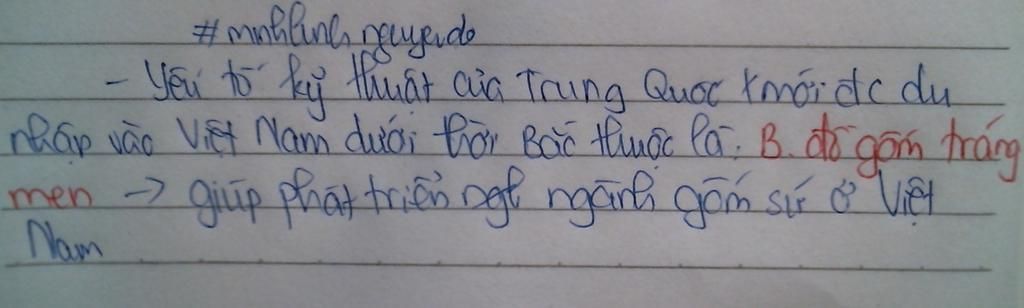 #minhlinh nguyendo
- Yếu tố kỹ thuật của Trung Quốc mới đc du
nhập vào Việt Nam dưới thời Bắc thuộc là: B. đồ gốm tráng
men → giúp phát triển ngh ngành gốm sứ ở Việt
Nam